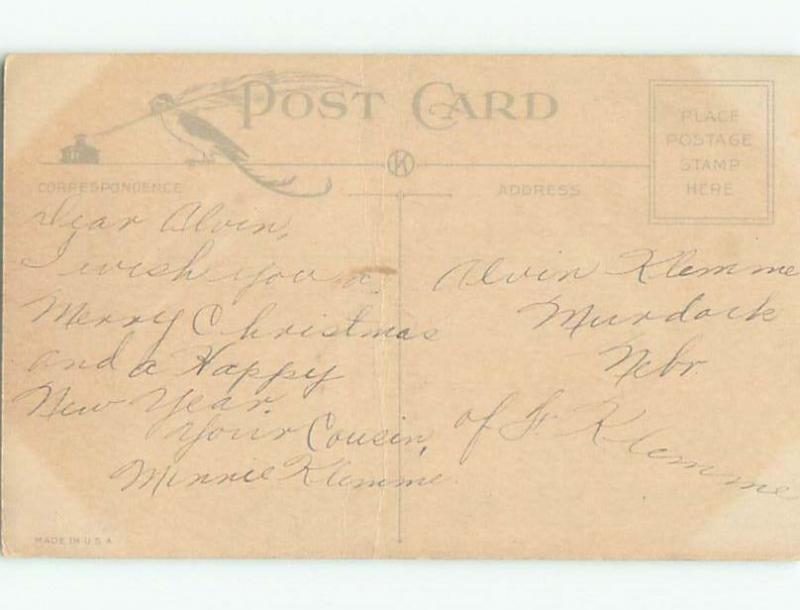 POST CARD
PLACE
POSTAGE
STAMP
HERE
CORRESPONDENCE
ADDRESS
Dear Alvin,
I wish you a
Merry Christmas
and a Happy
New Year.
Your Cousin,
Minnie Klemme
Alvin Klemme
Murdock
Nebr.
of F. Klemme
MADE IN U.S.A